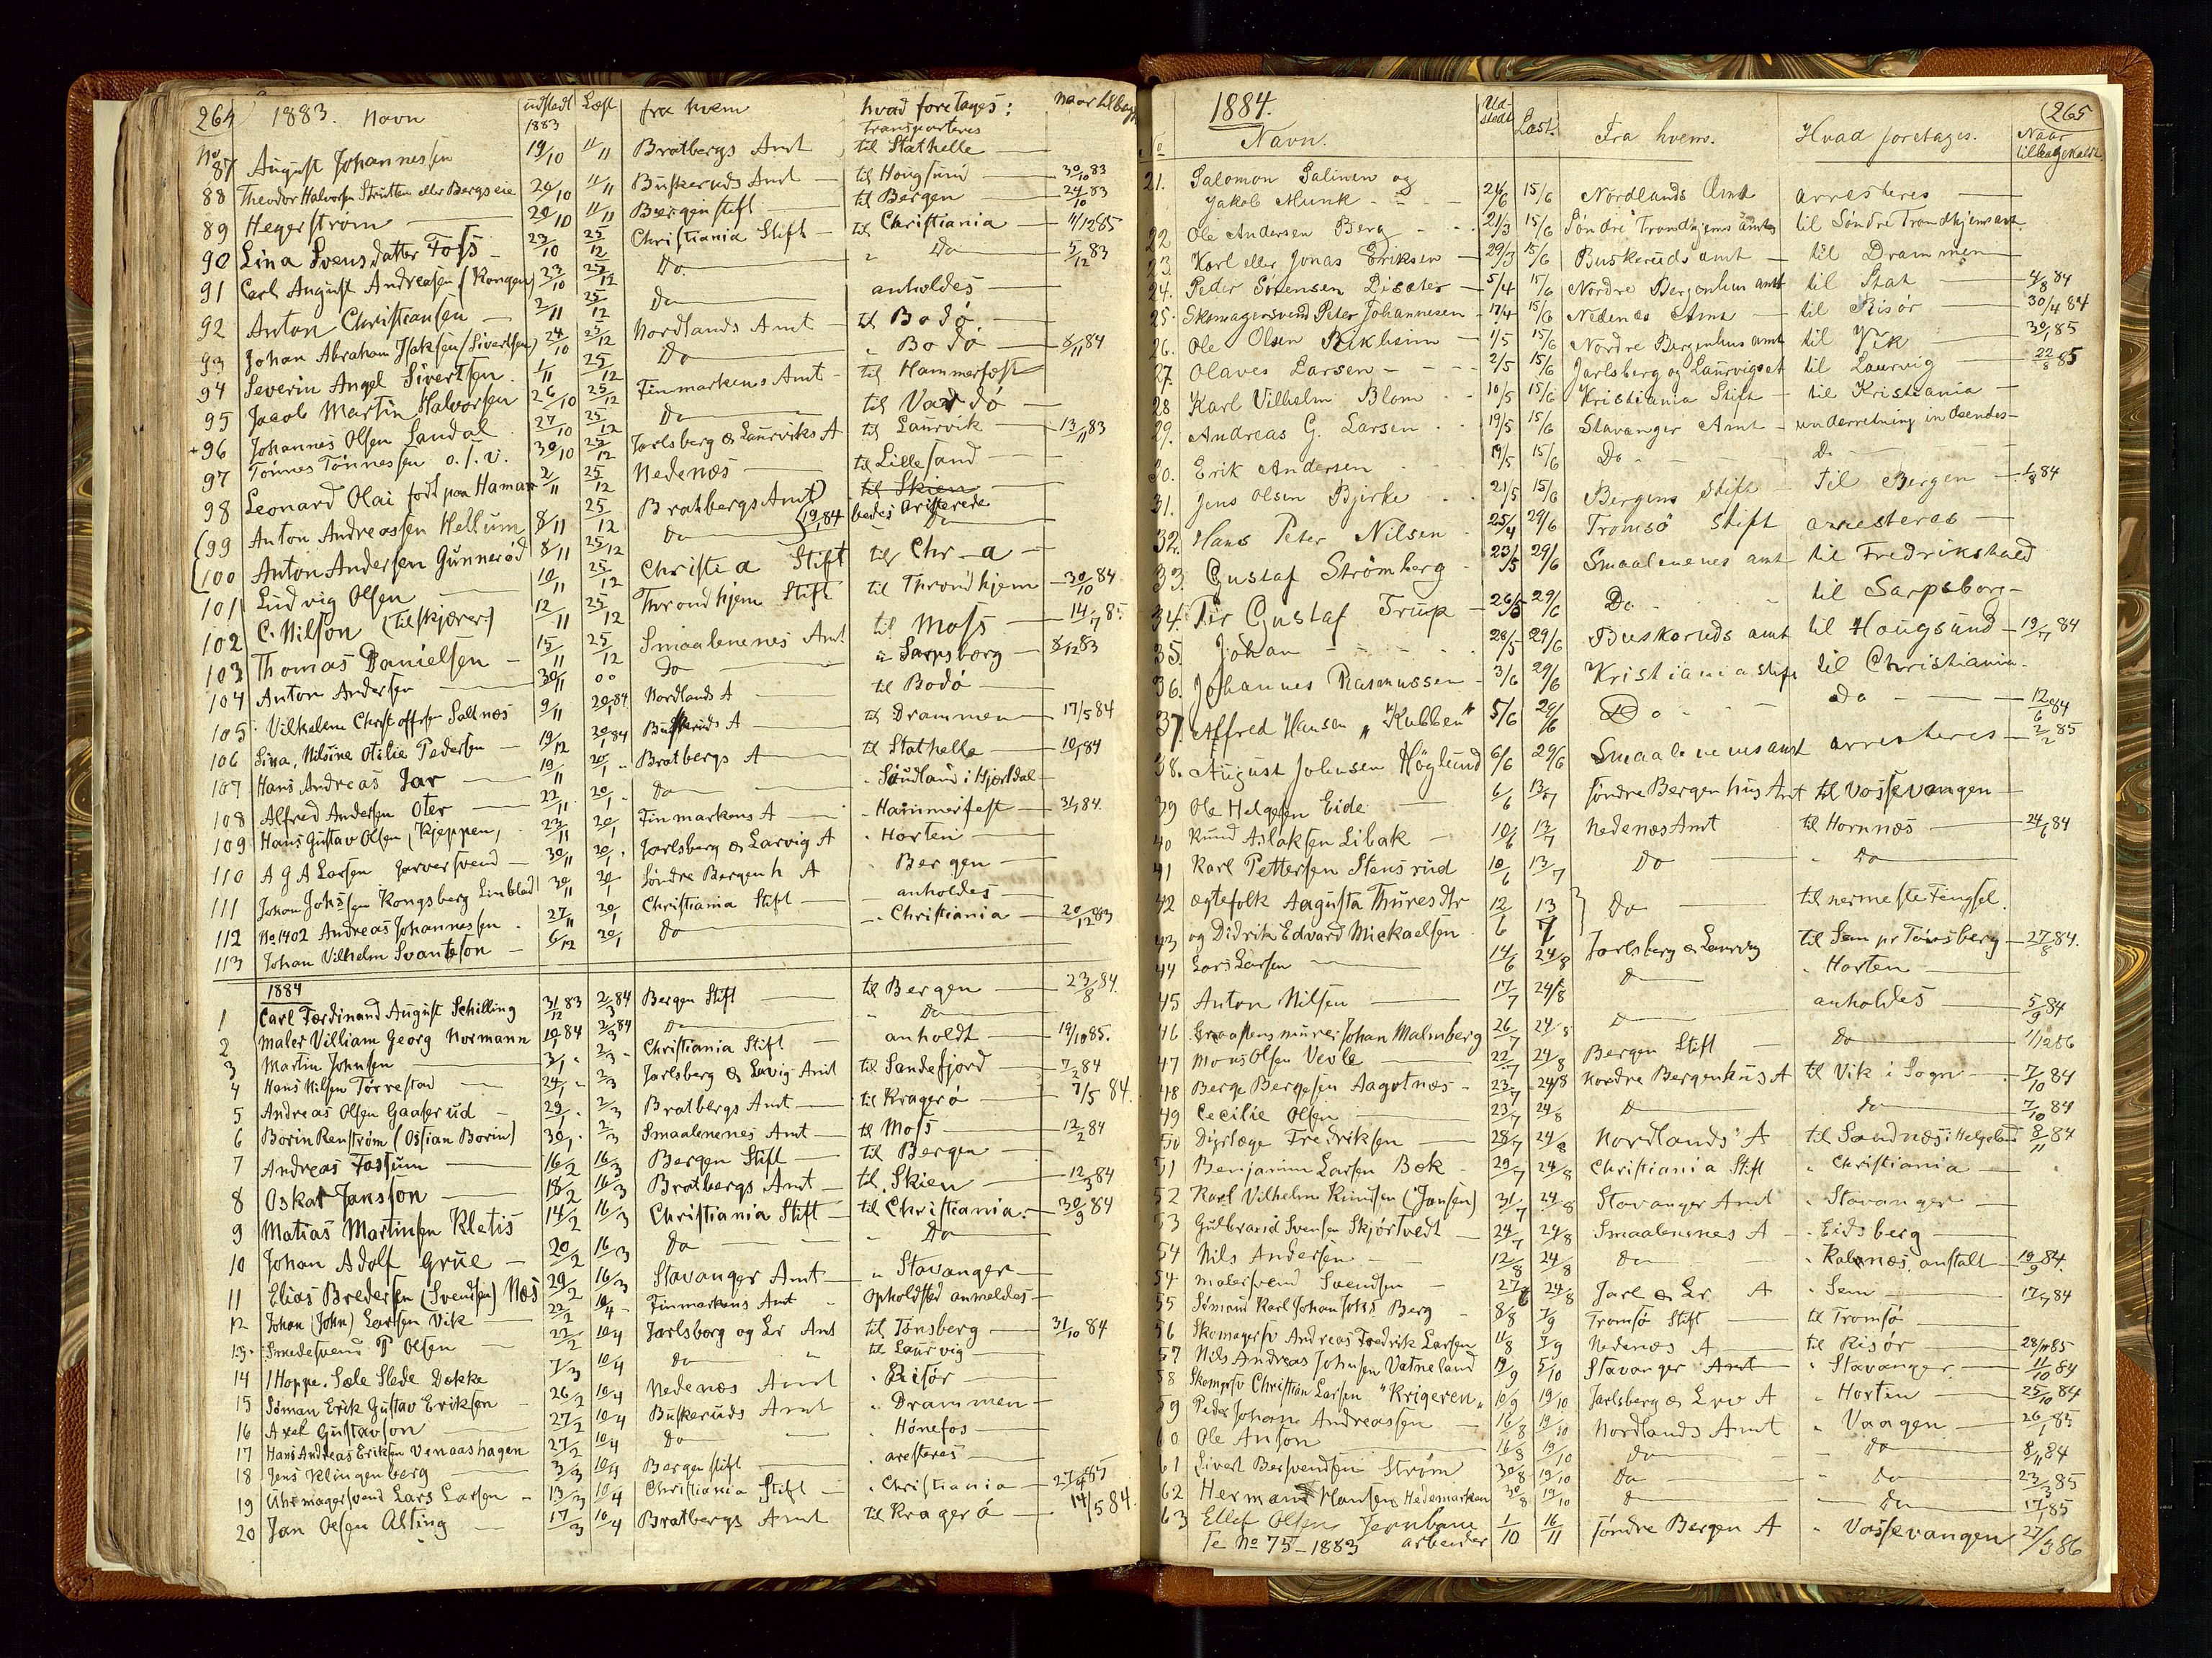 264 1883. Navn udstedt Læst fra hvem hvad foretages: naar tilbag
1883 Transporteres
No 87 August Johannessen 19/10 11/11 Bratbergs Amt til Stathelle
88 Theodor Halvorsen Strutten eller Bergseie 20/10 11/11 Buskeruds Amt til Hougsund 30/10 83
89 Hegerstrøm 20/10 11/11 Bergen stift til Bergen 24/10 83
90 Lina Svensdatter Foss 23/10 25/12 Christiania Stift til Christiania 11/12 85
91 Carl August Andreasen (Kongen) 23/10 25/12 Do " Do 5/12 83
92 Anton Christiansen 2/11 25/12 Do anholdes
93 Johan Abraham Isaksen (Sivertsen) 24/10 25/12 Nordlands Amt til Bodø
94 Severin Angel Sivertsen 1/11 25/12 Do " Bodø 8/11 84
95 Jacob Martin Halvorsen 26/10 25/12 Finmarkens Amt til Hammerfest
+96 Johannes Olsen Landal 27/10 25/12 Do til Vardø
97 Tønnes Tønnessen o.s.v. 30/10 25/12 Jarlsberg & Laurviks A til Laurvik 13/11 83
98 Leonard Olai født paa Hamar 2/11 25/12 Nedenæs til Lillesand
99 Anton Andreassen Hellum 8/11 25/12 Bratbergs Amt til Skien
19/1 84 bedes Aristerede
100 Anton Andersen Gunnerød 8/11 25/12 Do Do
101 Ludvig Olsen 10/11 25/12 Christi a Stift til Chr-a
102 C. Nilson (Tilskjærer) 12/11 25/12 Throndhjem Stift til Throndhjem 30/10 84
103 Thomas Danielsen 15/11 25/12 Smaalenenes Amt til Moss 14/7 85
104 Anton Andersen 30/11 Do " Sarpsborg 8/12 83
105 Vilhelm Christoffersen Saltnæs 9/11 20/1 84 Nordlands A til Bodø
106 Lina, Nilsine Otilie Pedersen 19/12 20/1 84 Buskeruds A til Drammen 17/5 84
107 Hans Andreas Jar 19/11 20/1 Bratbergs A til Stathelle 10/1 84
108 Alfred Andersen Oter 22/11 20/1 Do " Saudland i Hjertdal
109 Hans Gustav Olsen (Kjeppen, 23/11 20/1 Finmarkens A " Hammerfest 31/1 84
110 A G A Larsen Garversvend 30/11 20/1 Jarlsberg & Larvig A " Horten
111 Johan Johssen Kongsberg Linblad 30/11 20/1 Søndre Bergenh A " Bergen
112 No 1402 Andreas Johannessen 27/11 20/1 Christiania Stift anholdes
113 Johan Vilhelm Svanteson 6/12 20/1 Do " Christiania 20/12 83
1884
1 Carl Ferdinand August Schilling 31/12 83 2/3 84 Bergen Stift til Bergen 23/8 84
2 Maler Villiam Georg Normann 10/1 84 2/3 84 Do " Do
3 Martin Johnsen 3/1 2/3 Christiania Stift anholdt 19/10 85.
4 Hans Nilsen Tørrestad 24/1 2/3 Jarlsberg & Lavig Amt til Sandefjord 7/2 84
5 Andreas Olsen Gaaserud 29/1 2/3 Bratbergs Amt til Kragerø 7/5 84.
6 Borin Renstrøm (Ossian Borin) 30/1 2/3 Smaalenenes Amt til Moss 12/2 84
7 Andreas Fossum 16/2 16/3 Bergen Stift til Bergen
8 Oskar Jansson 18/2 16/3 Bratbergs Amt til Skien 12/3 84
9 Matias Martinsen Kletis 14/2 16/3 Christiania Stift til Christiania 30/9 84
10 Johan Adolf Grue 20/2 16/3 Do " Do
11 Elias Bredersen (Svendsen) Næs 29/2 16/3 Stavanger Amt " Stavanger
12 Johan (John) Larsen Vik 22/2 10/4 Finmarkens Amt Opholdsted anmeldes
13 Smedesvend P Olsen 22/2 10/4 Jarlsberg og Lr Amt til Tønsberg 31/10 84
14 I Hoppe. Sæle Slede Dokke 7/3 10/4 Do " til Laurvig
15 Søman Erik Gustav Eriksen 26/2 10/4 Nedenæs Amt " Risør
16 Axel Gustavson 27/2 10/4 Buskeruds Amt " Drammen
17 Hans Andreas Eriksen Venaashagen 27/2 10/4 Do " Hønefos
18 Jens Klingenberg 3/3 10/4 Bergen stift " aresteres
19 Uhrmagersvend Lars Larsen 13/3 10/4 Christiania Stift " Christiania 27/4 85
20 Jan Olsen Alting 17/3 10/4 Bratbergs Amt til Kragerø 14/5 84.
1884. 265
No Navn. Udstedt Læst. Fra hvem. Hvad foretages. Naar tilbagekaldt.
21. Salomon Salinen og
Jakob Munk 24/6 15/6 Nordlands Amt arresteres
22 Ole Andersen Berg 21/3 15/6 Søndre Trondhjems amt til Søndre Trondhjems amt
23. Karl eller Jonas Eriksen 29/3 15/6 Buskeruds amt til Drammen
24. Peder Sørensen Liseter 5/4 15/6 Nordre Bergenhus amt til Stat 4/8 84
25. Skomagersvend Peter Johannesen 17/4 15/6 Nedenæs Amt til Risør 30/4 84
26. Ole Olsen Rikheim 1/5 15/6 Nordre Bergenhus amt til Vik 30/1 85
27. Olaves Larsen 2/5 15/6 Jarlsberg og Laurvigs at til Laurvig 22/8 85
28 Karl Vilhelm Blom 10/5 15/6 Kristiania Stift til Kristiania
29. Andreas G. Larsen 19/5 15/6 Stavanger Amt underretning indsendes
30. Erik Andersen 19/5 15/6 Do Do
31. Jens Olsen Bjirke 21/5 15/6 Bergens Stift Til Bergen 1/8 84
32. Hans Peter Nilsen 25/4 29/6 Tromsø Stift arresteres
33. Gustaf Strömberg 23/5 29/6 Smaalenenes amt til Fredrikshald
34. Per Gustaf Trup 26/5 29/6 Do til Sarpsborg
35. Johan 28/5 29/6 Buskeruds amt til Hougsund 19/7 84
36. Johannes Rasmussen 3/6 29/6 Kristiania stift til Christiania.
37. Alfred Hansen "Kubben" 5/6 29/6 Do Do 12/6 84
38. August Johnsen Höglund 6/6 29/6 Smaalenenes amt arresteres 2/2 85
39 Ole Helgesen Eide 6/6 13/7 Søndre Bergenhus Amt til Vossevangen
40 Knud Aslaksen Libak 10/6 13/7 Nedenæs Amt til Hornnæs 24/6 84
41 Karl Pettersen Stensrud 10/6 13/7 Do " Do
42 ægtefolk Augusta Thuresdtr 12/6 13/7 Do til nermeste Fengsel.
43 og Didrik Edvard Mickaelsen
44 Lars Larsen 14/6 24/8 Jarlsberg & Laurvig til Sem pr Tønsberg 27/8 84.
45 Anton Nilsen 17/7 24/8 Do " Horten
46 Graastensmurer Johan Malmberg 26/7 24/8 Do anholdes 5/9 84
47 Mons Olsen Vevle 22/7 24/8 Bergen Stift Do 1/12 86
48 Berge Bergesen Aagotnæs 23/7 24/8 Nordre Bergenhus A til Vik i Sogn 7/10 84
49 Cecilie Olsen 23/7 24/8 Do Do 7/10 84
50 Dyrlæge Fredriksen 28/7 24/8 Nordlands A til Sandnæs i Helgeland 8/11 84
51 Benjamin Larsen Bok 29/7 24/8 Christiania Stift " Christiania
52 Karl Vilhelm Knudsen (Jansen) 31/7 24/8 Stavanger Amt " Stavanger
53 Gulbrand Svensen Skjørtvedt 24/7 24/8 Smaalenenes A " Eidsberg
54 Nils Andersen 12/8 24/8 Do " Kalnæs anstalt 19/9 84.
54 Malersvend Svendsen 27/6 24/8 Jarl & Lr A " Sem 17/9 84
55 Sømand Karl Johan Johs Berg 8/8 7/9 Tromsø Stift til Tromsø
56 Skomagersv Andreas Fredrik Larsen 11/8 7/9 Nedenæs A til Risør 28/11 85
57 Nils Andreas Johnsen Vatneland 19/9 5/10 Stavanger Amt " Stavanger 11/10 84
58 Skomgrsv Christian Larsen "Krigeren" 10/9 19/10 Jarlsberg & Lrv A " Horten 25/10 84
59 Peder Johan Andreassen 16/8 19/10 Nordlands Amt " Vaagen 26/1 85
60 Ole Anton 16/8 19/10 Do " Do 8/11 84
61 Sivert Bersvendsen Strøm 30/8 19/10 Do " Do 23/3 85
62 Herman Hansen Hedemarken 30/8 19/10 Do Do 17/1 85
63 Ellef Olsen Jernbane 1/10 16/11 Søndre Bergen A " Vossevangen 27/3 86
Se No 75-1883 arbeider